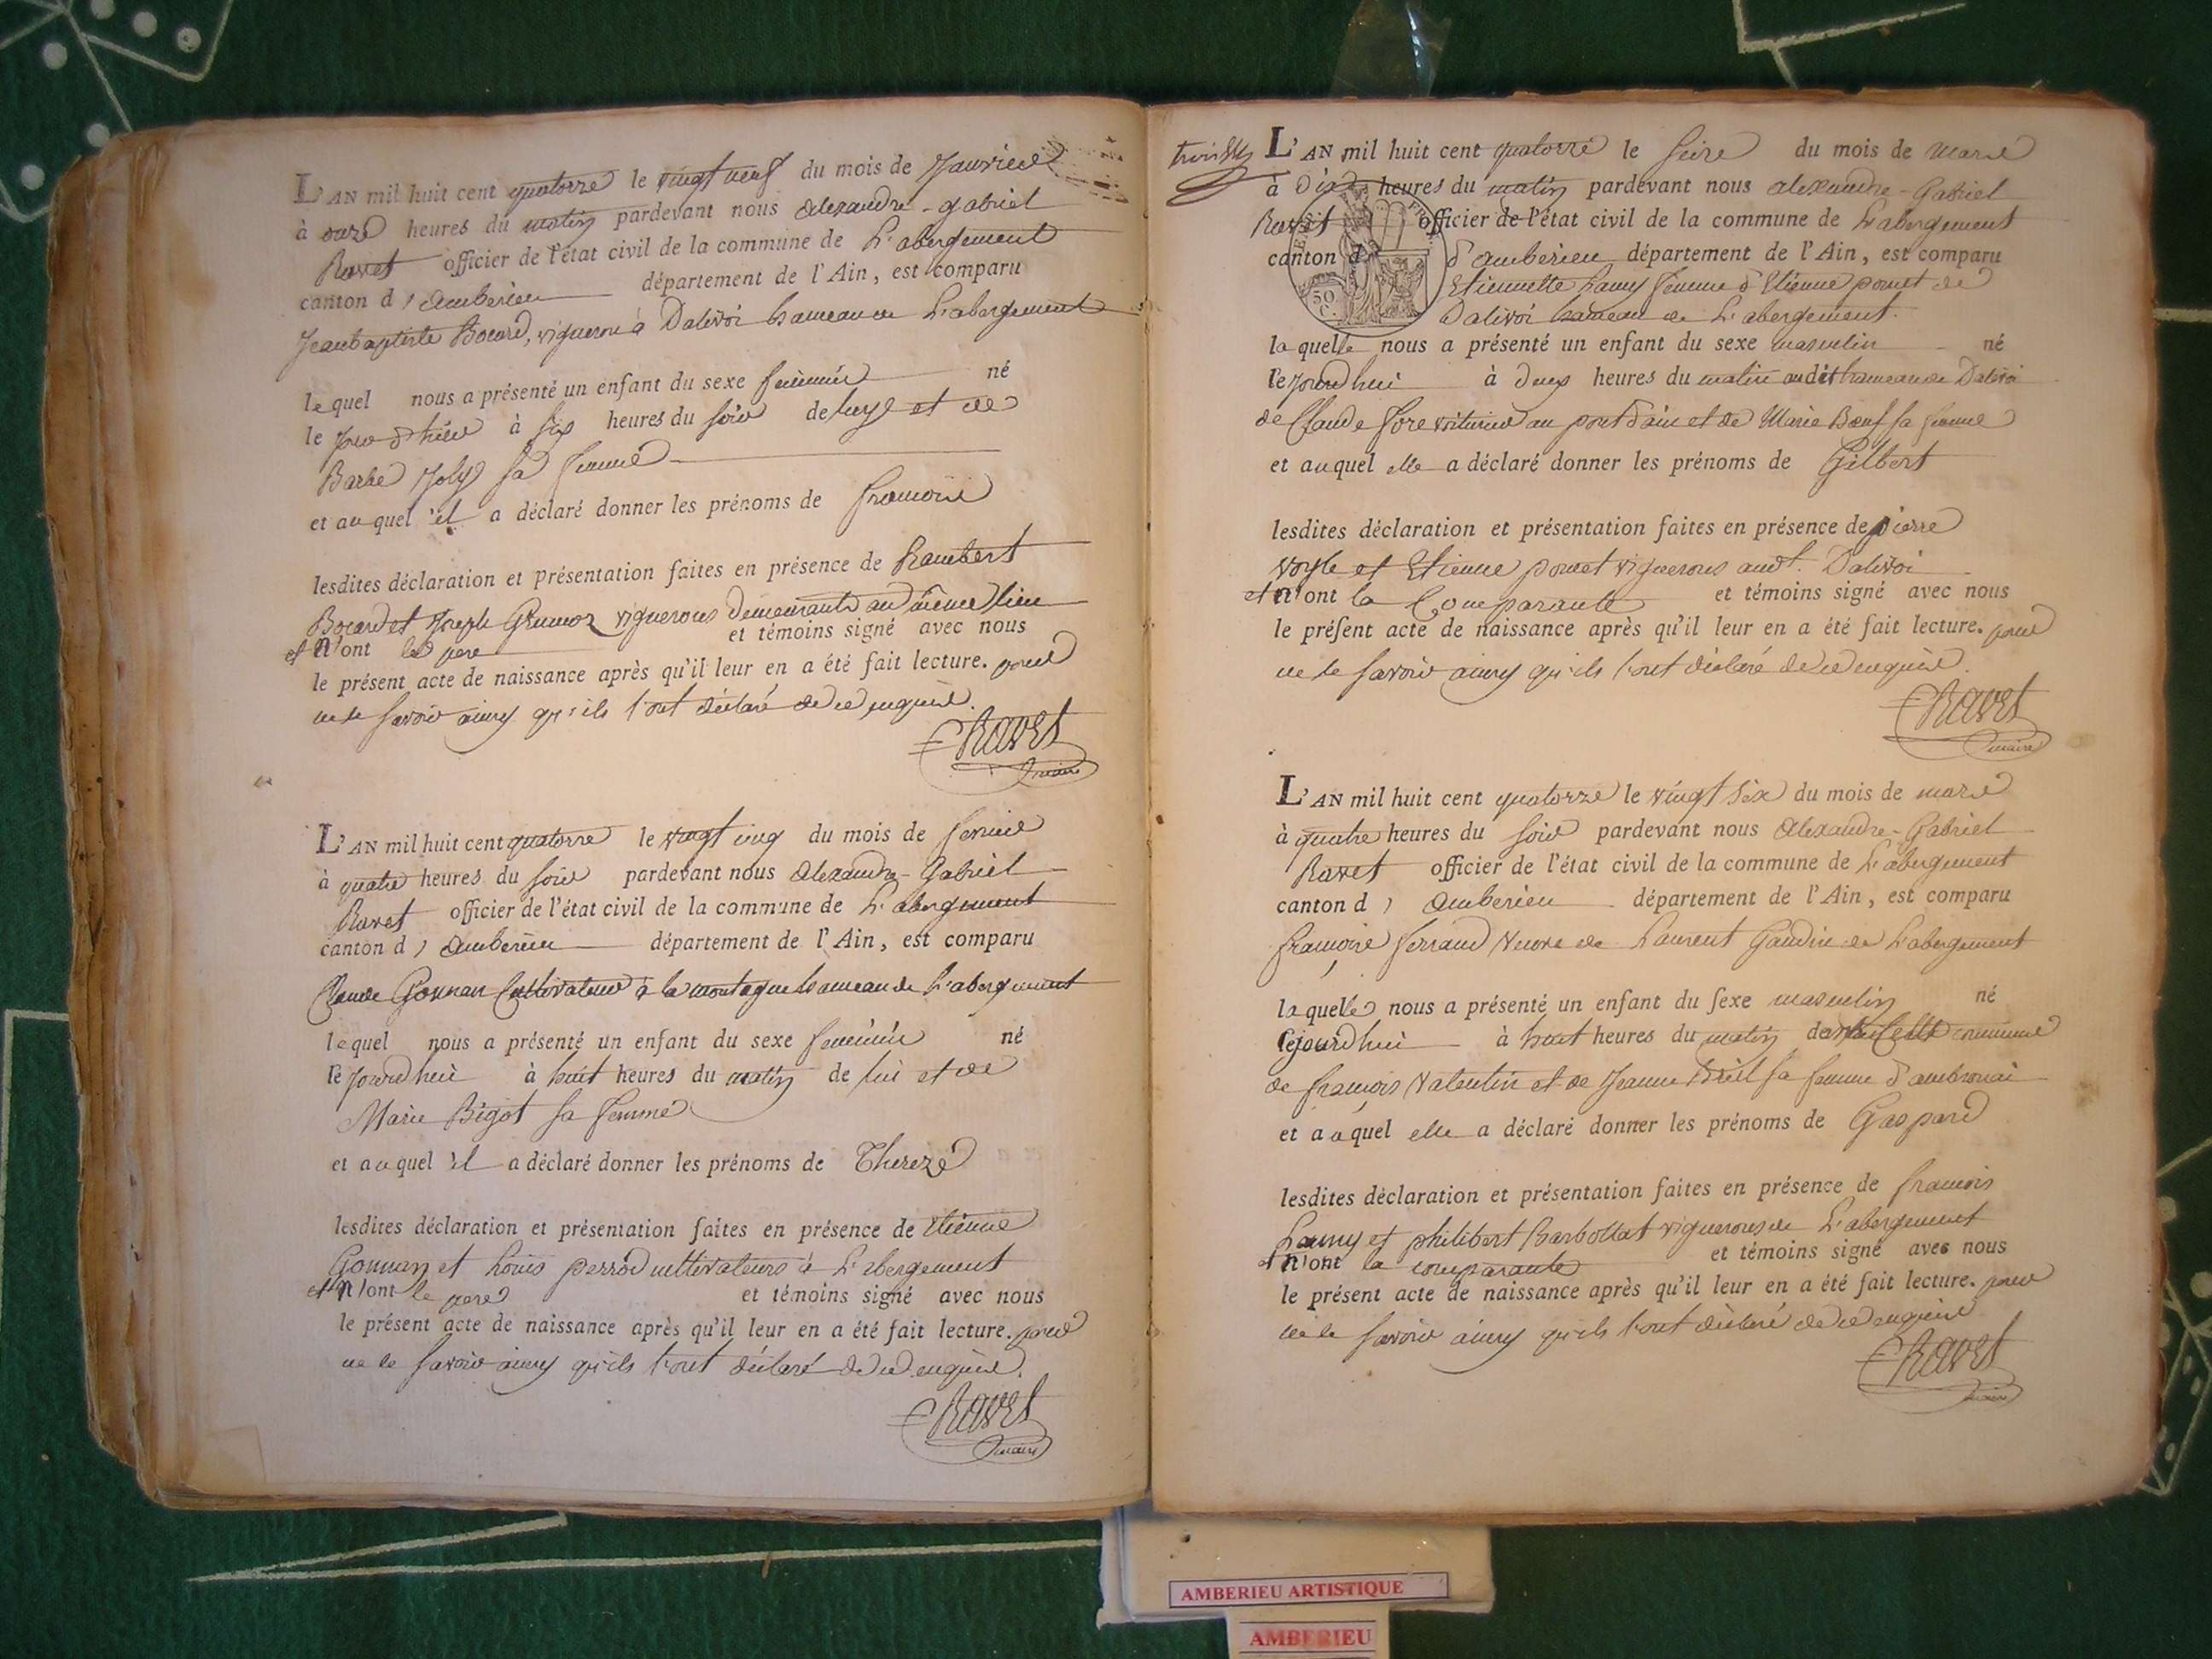 L'AN mil huit cent quatorze le vingt neuf du mois de Janvier
à onze heures du matin pardevant nous Alexandre-Gabriel
Ravet officier de l'état civil de la commune de L'abergement
canton d'Amberieu département de l'Ain, est comparu
Jeanbaptiste Bocard, vigneron à Dalivoi hameau de L'abergement
lequel nous a présenté un enfant du sexe feminin né
le jourd'hui à six heures du soir de luy et de
Barbe Joly sa femme
et auquel il a déclaré donner les prénoms de françoise
lesdites déclaration et présentation faites en présence de Rambert
Bocard et Joseph vignerons demeurants au même lieu
et n'ont le pere et témoins signé avec nous
le présent acte de naissance après qu'il leur en a été fait lecture. pour
ne le savoir ainsy qu'ils l'ont déclaré de ce enquis.
Ravet
maire
L'AN mil huit cent quatorze le vingt cinq du mois de fevrier
à quatre heures du soir pardevant nous Alexandre-Gabriel
Ravet officier de l'état civil de la commune de L'abergement
canton d'Amberieu département de l'Ain, est comparu
Claude Gonnan Cultivateur à la montagne hameau de L'abergement
lequel nous a présenté un enfant du sexe feminin né
le jourd'hui à huit heures du matin de lui et de
Marie Bigot sa femme
et auquel il a déclaré donner les prénoms de Thereze
lesdites déclaration et présentation faites en présence de Etienne
Gonnan et Louis perrod cultivateurs à L'abergement
et n'ont le pere et témoins signé avec nous
le présent acte de naissance après qu'il leur en a été fait lecture. pour
ne le savoir ainsy qu'ils l'ont déclaré de ce enquis.
Ravet
maire
L'AN mil huit cent quatorze le seize du mois de mars
à dix heures du matin pardevant nous alexandre-Gabriel
Ravet officier de l'état civil de la commune de L'abergement
canton d'amberieu département de l'Ain, est comparu
Etiennette Lamy femme d'Etienne poncet de
Dalivoi hameau de L'abergement.
laquelle nous a présenté un enfant du sexe masculin né
le jourd'hui à deux heures du matin audit hameau de Dalivoi
de Claude voiturier au pont d'ain et de Marie Bœuf sa femme
et auquel elle a déclaré donner les prénoms de Gilbert
lesdites déclaration et présentation faites en présence de pierre
et Etienne poncet vignerons aud. Dalivoi
et n'ont la Comparante et témoins signé avec nous
le présent acte de naissance après qu'il leur en a été fait lecture. pour
ne le savoir ainsy qu'ils l'ont déclaré de ce enquis.
Ravet
maire
L'AN mil huit cent quatorze le vingt six du mois de mars
à quatre heures du soir pardevant nous Alexandre-Gabriel
Ravet officier de l'état civil de la commune de L'abergement
canton d'Amberieu département de l'Ain, est comparu
françoise ferrand veuve de Laurent Gaudin de L'abergement
laquelle nous a présenté un enfant du sexe masculin né
le jourd'hui à huit heures du matin commune
de françois Valentin et de Jeanne sa femme d'ambronai
et auquel elle a déclaré donner les prénoms de Gaspard
lesdites déclaration et présentation faites en présence de francois
Lamy et philibert Barbollat vignerons de L'abergement
et n'ont la comparante et témoins signé avec nous
le présent acte de naissance après qu'il leur en a été fait lecture. pour
ne le savoir ainsy qu'ils l'ont déclaré de ce enquis
Ravet
maire
AMBERIEU ARTISTIQUE
AMBERIEU